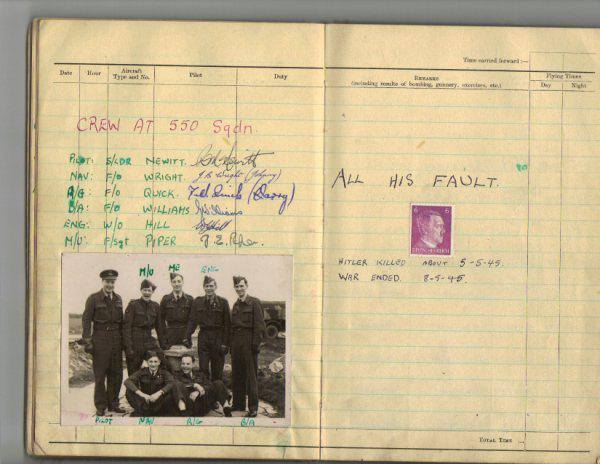 Time carried forward :—
Date Hour Aircraft Type and No. Pilot Duty
CREW AT 550 Sqdn.
PILOT: S/LDR NEWITT.
NAV: F/O WRIGHT. (Johnny)
R/G: F/O QUICK. (Darry)
B/A: F/O WILLIAMS Williams
ENG: W/O HILL
M/U: F/Sgt PIPER
M/U ME ENG
PILOT NAV R/G B/A
Remarks
(including results of bombing, gunnery, exercises, etc.)
Flying Times
Day Night
ALL HIS FAULT.
6 6
HITLER KILLED ABOUT 5-5-45.
WAR ENDED. 8-5-45.
Total Time